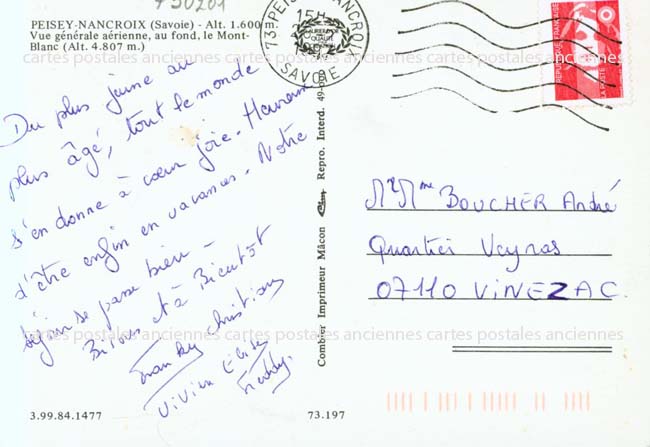 730201
PEISEY-NANCROIX (Savoie) - Alt. 1.600 m.
Vue générale aérienne, au fond, le Mont-
Blanc (Alt. 4.807 m.)
73 PEISEY-NANCROIX
15H
SAVOIE
cartes postales anciennes cartes postales anciennes cartes postales anciennes
Du plus jeune au
plus âgé, tout le monde
s'en donne à cœur joie. Heureux
d'être enfin en vacances. Notre
séjour se passe bien -
Bisous et à Bientôt
Christian
Vivien Elise
Mr Mme BOUCHER André
Quartier Veyras
07110 VINEZAC
cartes postales anciennes cartes postales anciennes cartes postales anciennes
Combier Imprimeur Mâcon
Repro. Interd.
3.99.84.1477
73.197